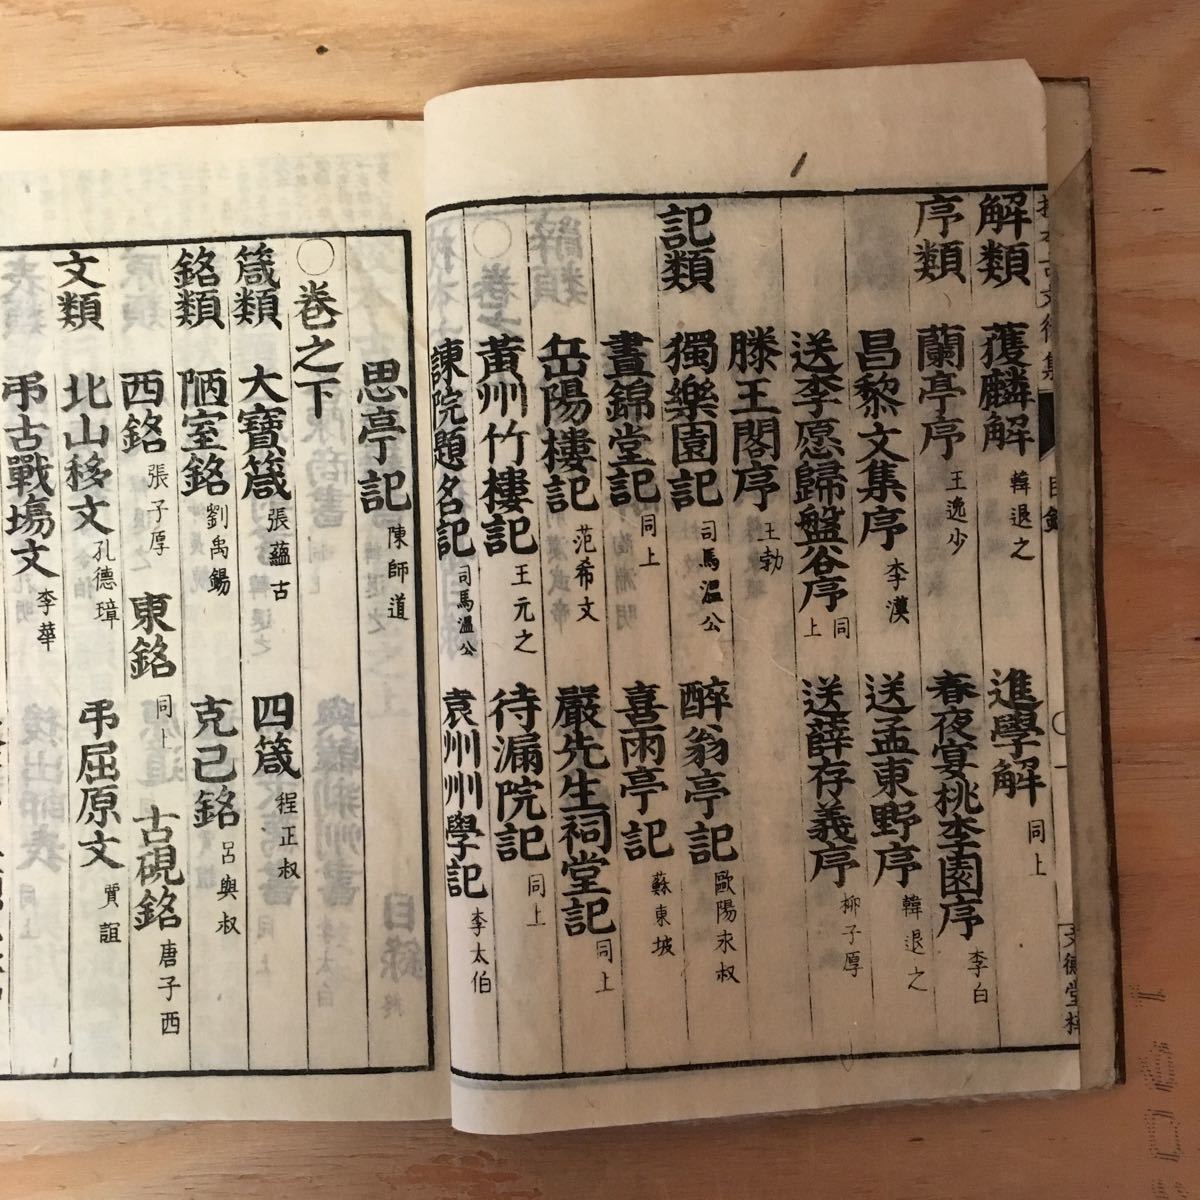 解類 獲麟解 韓退之 進學解 同上
序類 蘭亭序 王逸少 春夜宴桃李園序 李白
昌黎文集序 李漢 送孟東野序 韓退之
送李愿歸盤谷序 同上 送薛存義序 柳子厚
滕王閣序 王勃
記類 獨樂園記 司馬溫公 醉翁亭記 歐陽永叔
晝錦堂記 同上 喜雨亭記 蘇東坡
岳陽樓記 范希文 嚴先生祠堂記 同上
黃州竹樓記 王元之 待漏院記 同上
諫院題名記 司馬溫公 袁州州學記 李太伯
思亭記 陳師道
○卷之下
箴類 大寶箴 張蘊古 四箴 程正叔
銘類 陋室銘 劉禹錫 克己銘 呂與叔
西銘 張子厚 東銘 同上 古硯銘 唐子西
文類 北山移文 孔德璋 弔屈原文 賈誼
弔古戰場文 李華
目錄
文德堂梓